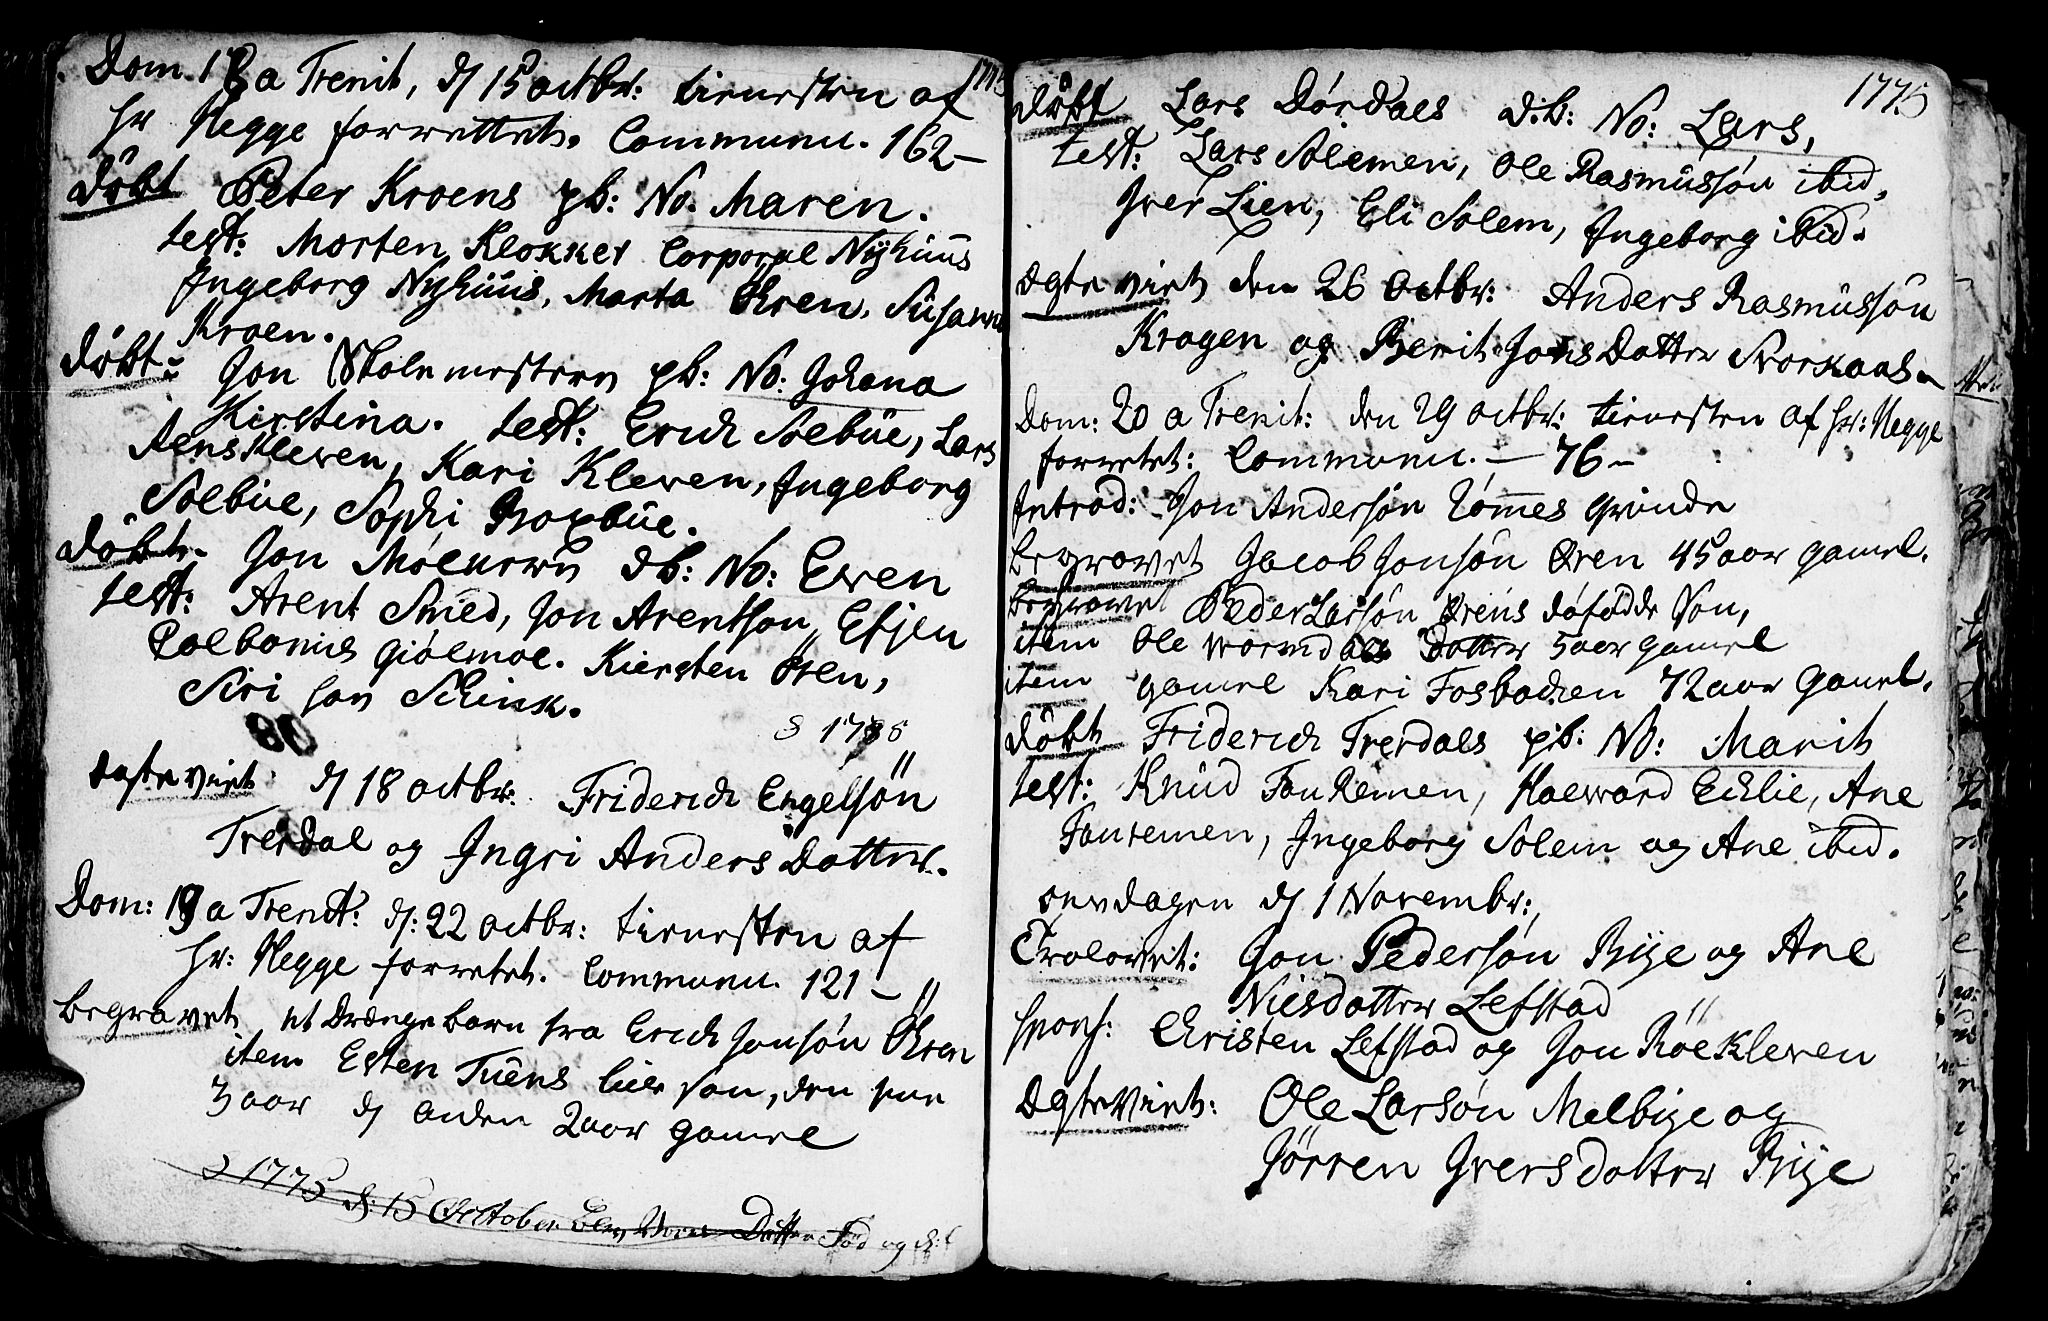 Dom. 18 a Trenit, d 15 octbr: tienesten af
1775
hr Hegge forrettet. Communi. 162 –
Döbt Peter Kroens pb: No. Maren.
test: Morten Klokker Corporal Nyhuus
Ingeborg Nyhuus, Marta Ören, Susanna
Kroen.
Döbt: Jon Skolemesteren pb: No: Johana
Kirstina. test: Erich Solbue, Lars
Klewen, Kari Klewen, Ingeborg
Solbue, Sophi
Döbt. Jon db: No: Ewen
test: Arent Smed, Jon Arentson, Etjen
Giölmoe. Kiersten Ören,
Siri Jon Schink.
Egtevict d 18 octbr. Friderich Engelsön
Trerdal og Ingri Anders Datter.
Dom: 19 a Trenit: d: 22 octbr: tienesten af
hr: Hegge forretet. Communi. 121 –
begravet et Drænge barn fra Erich Jonsön Ören
item Esten Tuens son, den ene
3 aar d anden 2 aar gamel
1775 d: 15 October Datter Föd og
1775
Döbt Lars Dördals d.b: No: Lars,
test: Lars Solemen, Ole Rasmussön ibid,
Iver Lien, Eli Solem, Ingeborg ibid.
Egtevict den 26 octbr: Anders Rasmussön
Kragen og Berit Jons Datter Storkaas
Dom: 20 a Trenit: den 29 octbr: tienesten af hr: Hegge
forretet: Communi. – 76 –
Introd: Jon Andersön Römmes Qvinde
begravet Jacob Jonsön Ören 45 aar gamel.
begravet Peder Larsön Örens döfödde Sön,
item Ole Wormdals Datter 5 aar gamel
item gamel Kari Fosbacken 72 aar Gamel.
Döbt Friderich Trerdals pb: No: Marit
test: Knud Fouskemen, Halword Echlie, Ane
Ingeborg Solem og Ane ibid.
onsdagen d 1 Novembr:
Trolovet: Jon Pedersön Rije og Ane
Nilsdatter Lefstad
spons: Christen Lefstad og Jon Röeklewen
Egtevict: Ole Larsön Melbye og
Jörren Iversdatter Rije